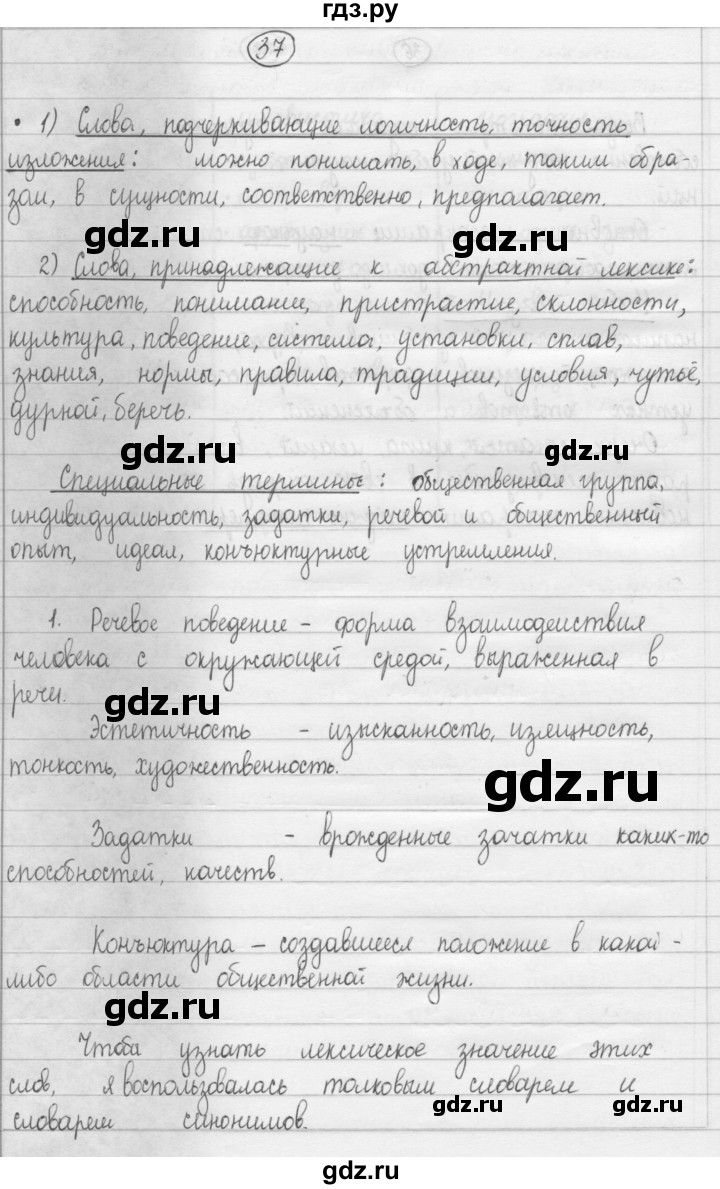 гдз.ру
37
• 1) Слова, подчеркивающие логичность, точность
изложения: можно понимать, в ходе, таким обра-
зом, в сущности, соответственно, предполагает.
gdz.ru gdz.ru
2) Слова, принадлежащие к абстрактной лексике:
способность, понимание, пристрастие, склонности,
культура, поведение, система, установки, сплав,
знания, нормы, правила, традиции, условия, чутьё,
дурной, беречь.
gdz.ru gdz.ru
Специальные термины: общественная группа,
индивидуальность, задатки, речевой и общественный
опыт, идеал, конъюктурные устремления.
1. Речевое поведение – форма взаимодействия
человека с окружающей средой, выраженная в
речи.
gdz.ru
Эстетичность – изысканность, изящность,
тонкость, художественность.
gdz.ru
Задатки – врожденные зачатки каких-то
способностей, качеств.
Конъюктура – создавшееся положение в какой-
либо области общественной жизни.
gdz.ru
Чтоба узнать лексическое значение этих
слов, я воспользовалась толковым словарем и
gdz.ru gdz.ru
словарем синонимов.
gdz.ru